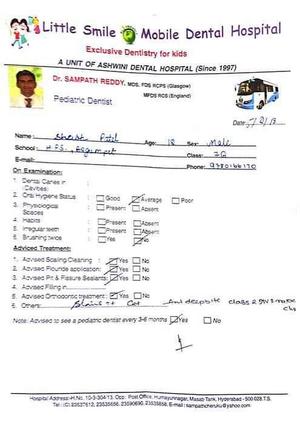 Little Smile Mobile Dental Hospital
Exclusive Dentistry for kids
A UNIT OF ASHWINI DENTAL HOSPITAL (Since 1997)
Dr. SAMPATH REDDY, MDS, FDS RCPS (Glasgow)
MFDS RCS (England)
Pediatric Dentist
Date:
Name: Patil Age: 12 Sex: Male
School: H.P.S., Begumpet Class: 7G
E-mail: Phone:
On Examination:
1 Dental Caries in (Cavities)
2. Oral Hygiene Status : Good Average Poor
3. Physiological Spaces : Present Absent
4. Habits : Present Absent
5. Irregular teeth : Present Absent
6. Brushing twice : Yes No
Adviced Treatment:
1. Advised Scaling Cleaning : Yes No
2. Advised Flouride application: Yes No
3. Advised Pit & Fissure Sealants: Yes No
4. Advised Filling in
5. Advised Orthodontic treatment : Yes No
6. Others:
Note: Advised to see a pediatric dentist every 3-6 months Yes No
Hospital Address: H.No. 10-3-304/13, Opp: Post Office, Humayunnagar, Masab Tank, Hyderabad - 500 028 T.S.
E-mail : sampathcheruku@yahoo.com